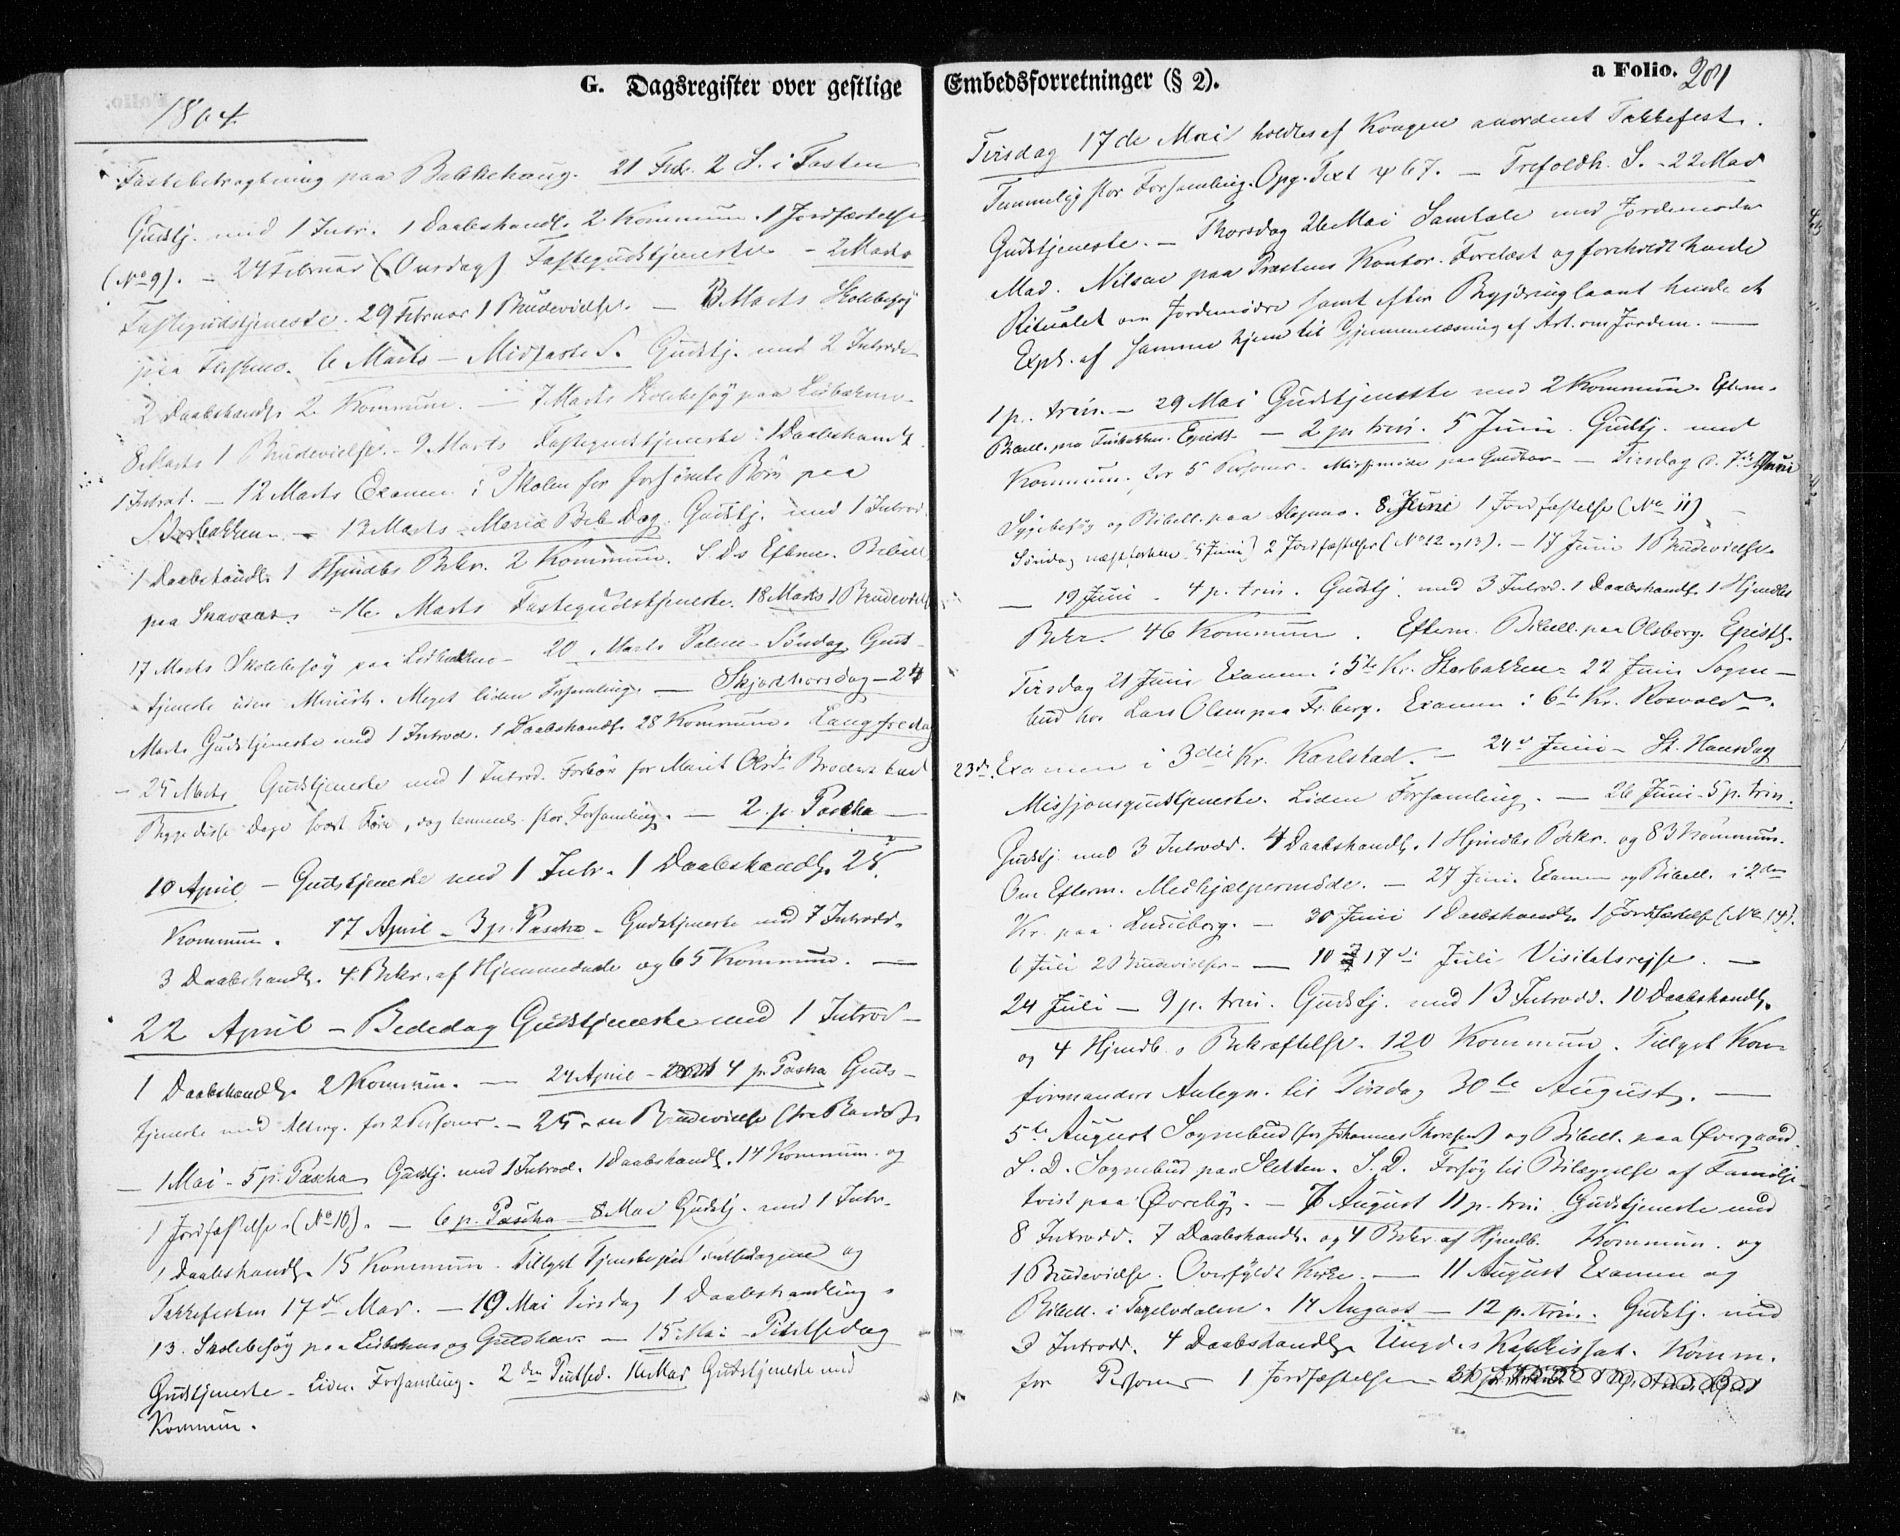 G. Dagsregister over gestlige
1864
Fastebetragtning paa Bakkehaug. 21 Febr. 2 S. i Fasten
Gudstj. med 1 Intr. 1 Daabshandl. 2 Kommun. 1 Jordfæstelse
(No 9). – 24 Februar (Onsdag) Fastegudstjeneste – 2 Marts
Fastegudstjeneste. 29 Februar 1 Brudevielse. — 3 Marts Skolebesøg
paa 6 Marts – Midfaste S. Gudstj. med 2 Introd.
2 Daabshandl. 2 Kommun. — 7 Marts Skolebesøg paa
8 Marts 1 Brudevielse. – 9 Marts Fastegudstjeneste 1 Daabshandl.
1 Introd. – 12 Marts Examen i Skolen for forsömte Börn paa
Storbakken – 13 Marts – Mariæ Beb. Dag. Gudstj. med 1 Introd.
1 Daabshandl. 1 Hjmdbs Bekr. 2 Kommun. S. D. Efterm. Bibell.
paa – 16. Marts Fastegudstjeneste. 18 Marts 1 Brudevielse
17 Marts Skolebesøg paa – 20 Marts Palme-Søndag Guds-
tjeneste uden Meget liden Forsamling. — Skjærthorsdag – 24
Marts Gudstjeneste med 1 Introd. 1 Daabshandl. 28 Kommun. Langfredag
– 25 Marts Gudstjeneste med 1 Introd. Forbön for Marit Olsd.
Begge disse Dage Före, dog temmel. stor Forsamling. — 2. p. Pascha —
10 April – Gudstjeneste med 1 Intr. 1 Daabshandl. 25
Kommun. 17 April – 3 p. Pascha – Gudstjeneste med 7 Introd.
3 Daabshandl. 4 Bekr. af Hjemmedaab og 65 Kommun. —
22 April – Bededag Gudstjeneste med 1 Introd –
1 Daabshandl. 2 Kommun. — 24 April – 4 p. Pascha Guds-
tjeneste med Alterg. for 2 Personer. – 25 – en Brudevielse
– 1 Mai – 5 p. Pascha Gudstj. med 1 Introd. 1 Daabshandl. 14 Kommun. og
1 Jordfæstelse. (No 10). – 6 p. Pascha – 8 Mai Gudstj. med 1 Intr.
1 Daabshandl. 15 Kommun. Tillyst Tjeneste paa Pintsedagene og
Takkefesten 17de Mai. – 10 Mai Tirsdag 1 Daabshandling.
13. Skolebesøg paa og — 15 Mai – Pintsedag
Gudstjeneste – Liden Forsamling. 2den Pintsed. 16 Mai Gudstjeneste med
Kommun.
Embedsforretninger (§ 2).
a Folio. 281
Tirsdag 17de Mai holdtes af Kongen anordnet Takkefest.
Temmelig stor Forsamling. Opg. Text ψ 67. – Trefoldh. S. – 22 Mai
Gudstjeneste. – Thorsdag 26 Mai Samtale med Jordemoder
Mad. Nilsen paa Præstens Kontor. Forelæst og foreholdt hende
Ritualet om Jordemødre samt efter laant hende et
Expl. af samme hjem til Gjennemlæsning af Art. om Jordem. —
1 p. trin. – 29 Mai Gudstjeneste med 2 Kommun. Efterm.
Bibell. paa Epistl. – 2 p. trin. 5 Juni. Gudstj. med
Kommun. for 5 Personer. Missjonsmøde paa – Tirsdag d. 7de Juni
Sygebesøg og Bibell. paa 8 Juni 1 Jordfæstelse (No 11)
Søndag næstforhen (5 Juni) 2 Jordfæstelser (No 12 og 13). – 17 Juni 1 Brudevielse.
— 19 Juni. 4 p. trin. Gudstj. med 3 Introd. 1 Daabshandl. 1 Hjmdbs
Bekr. 46 Kommun. Efterm. Bibell. paa Olsborg. Epistl.
Tirsdag 21 Juni Examen i 5te Kr. Storbakken. 22 Juni Sogne-
bud hos Lars Olsen paa Frberg. Examen i 6te Kr. Rosvold.
23de. Examen i 3die Kr. Karlstad. – 24de Juni – St. Hansdag
Missjonsgudstjeneste. Liden Forsamling. — 26 Juni – 5 p. trin.
Gudstj. med 3 Introd. 4 Daabshandl. 1 Hjmdbs Bekr. og 83 Kommun.
Om Efterm. Medhjælpermøde. – 27 Juni Examen og Bibell. i 2den
Kr. paa – 30 Juni 1 Daabshandl. 1 Jordfæstelse (No 14).
6 Juli 2 Brudevielser – 10 17de Juli Visitatsrejse. —
24 Juli – 9 p. trin. Gudstj. med 13 Introdd. 10 Daabshandl.
og 4 Hjmdb.s Bekræftelse. 120 Kommun. Tillyst Kon-
firmanders Antegn. til Tirsdag 30te August. —
5te August Sognebud (for Johannes ) og Bibell. paa Øvergaard
S. D. Sognebud paa Sletten. S. D. Forsøg til Bilæggelse af Familje-
tvist paa Øvreby. – 7 August 11 p. trin Gudstjeneste med
8 Introdd. 7 Daabshandl. og 4 Bekr. af Hjmdb. Kommun. og
1 Brudevielse. Overfyldt Kirke. — 11 August Examen og
Bibell. i Tagelvdalen. 14 August – 12 p. trin. Gudstj. med
3 Introdd. 4 Daabshandl. Ungd.s Katekisat. Komm.
for Personer 1 Jordfæstelse